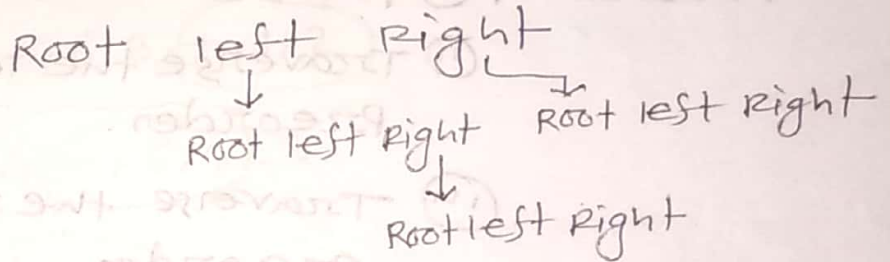 Root left Right
Root left Right Root left Right
Root left Right